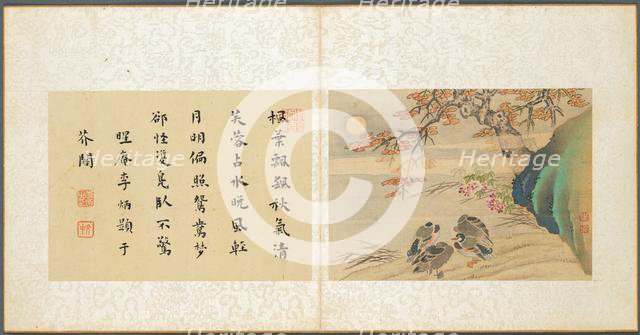 Heritage
Heritage
楓葉飄飄秋氣清
芙蓉占水晚風輕
月明偏照鴛鴦夢
郤怪雙鳧臥不驚
庵李炳題于
芥閣
©
Heritage
Heritage
Heritage
Heritage